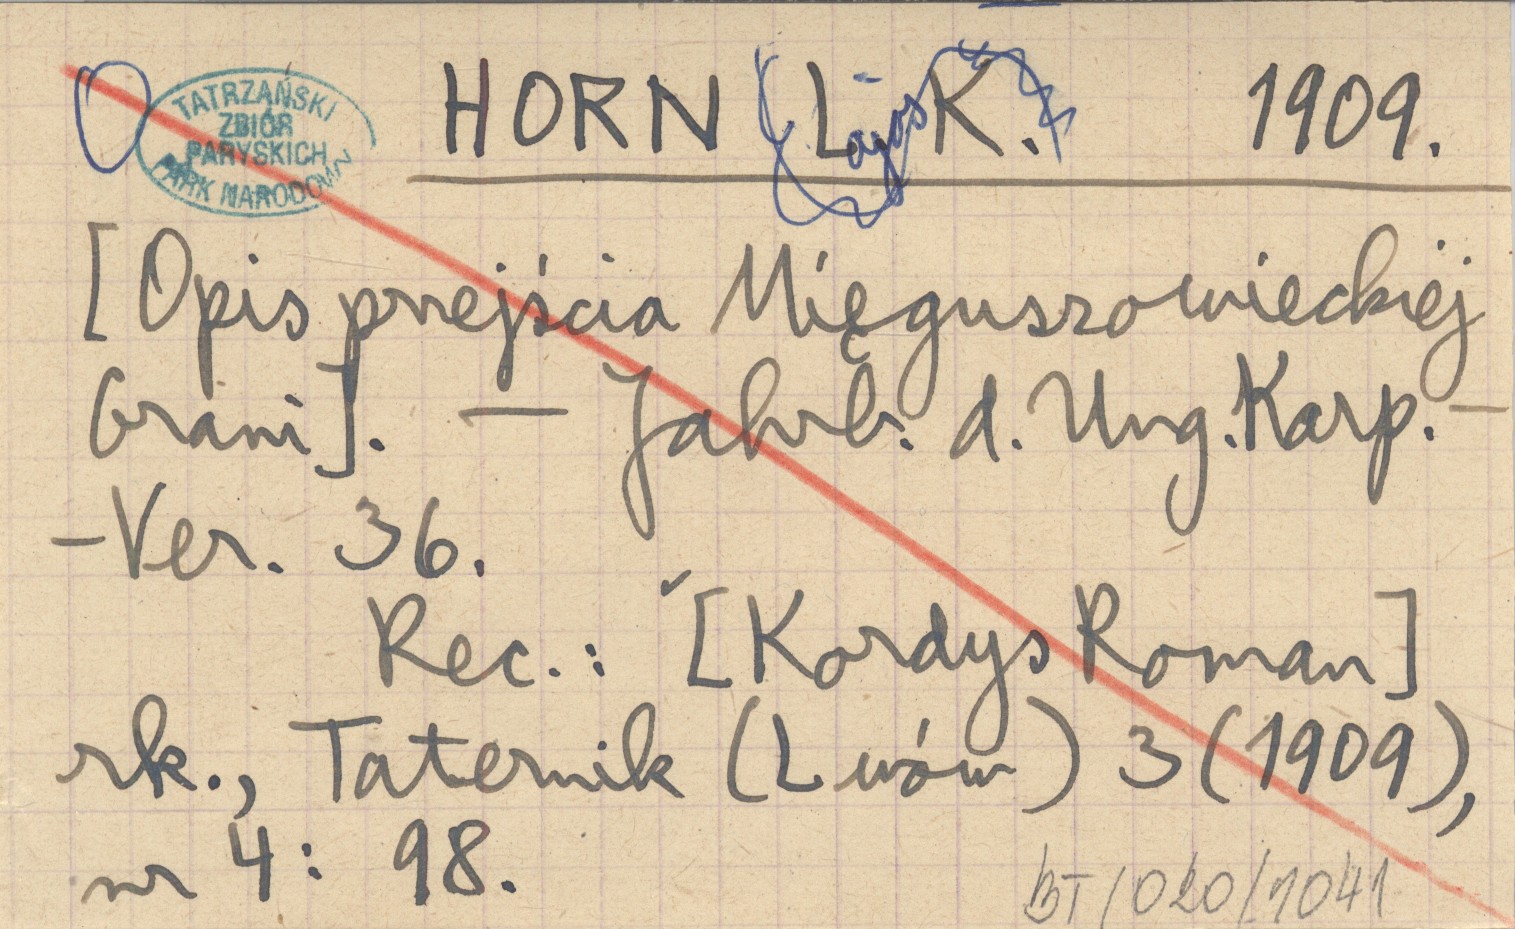 TATRZAŃSKI
ZBIÓR
PARYSKICH
PARK NARODOWY
HORN (Lajos K.) 1909.
[Opis przejścia Mięguszowieckiej
Grani]. — Jahrb. d. Ung. Karp. -
- Ver. 36.
Rec.: [Kordys Roman]
rk., Taternik (Lwów) 3 (1909),
nr 4: 98.
BT/020/1041